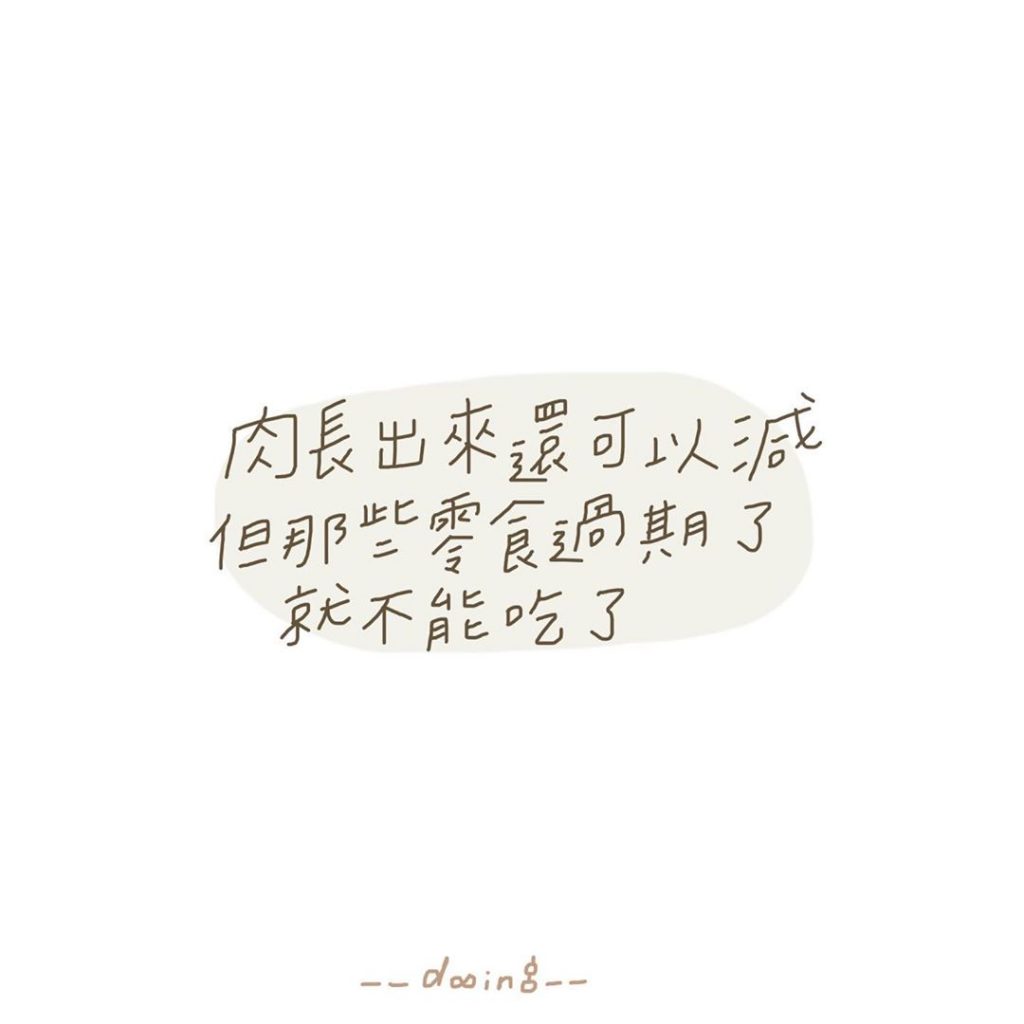 肉長出來還可以減
但那些零食過期了
就不能吃了
__dooing__